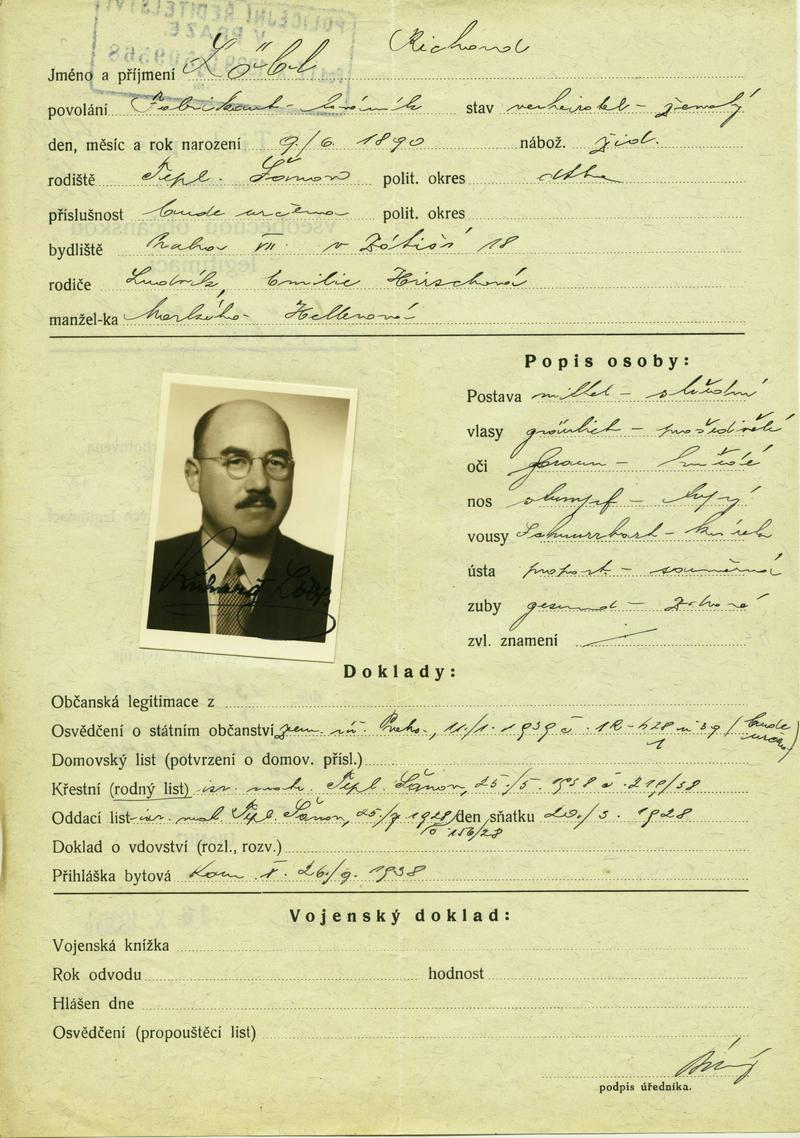 Jméno a příjmení Löbl Richard
povolání Fabrikant - továrník stav verheiratet - ženatý
den, měsíc a rok narození 9/6. 1890 nábož. žid.
rodiště Tepl. Šanov polit. okres
příslušnost bude určena polit. okres
bydliště Praha VII. 18
rodiče Ludvík, Emilie Hirschová
manžel-ka Hellerová
Popis osoby:
Postava mittel - střední
vlasy gräulich - prošedivělé
oči braun - hnědé
nos stumpf - tupý
vousy Schnurrbart - knírek
ústa proport. - souměrná
zuby gesund - zdravé
zvl. znamení
Richard Löbl
Doklady:
Občanská legitimace z
Osvědčení o státním občanství zem. úř. Praha, 11./1. 1939 č. (bude určena)
Domovský list (potvrzení o domov. přísl.)
Křestní (rodný list) isr. mat. Tepl. Šanov, 25./5. 1938 č. 219/38
Oddací list isr. mat. Tepl. Šanov, den sňatku 20./3. 1928
č 156/28
Doklad o vdovství (rozl., rozv.)
Přihláška bytová 26./9. 1938
Vojenský doklad:
Vojenská knížka
Rok odvodu hodnost
Hlášen dne
Osvědčení (propouštěcí list)
podpis úředníka.